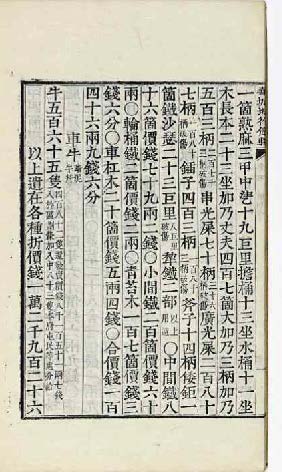 一箇熟麻三甲中䇶十九巨里擔桶十三坐水桶十一坐
木長本二十三坐加乃丈夫四百七箇大加乃二柄加乃
五百三柄串光屎七十柄廣光屎二百八十
七柄鍤子四百三柄斧子十四柄倭鉅一
箇鐵沙瑟二十三巨里犁鐵二部〇中間鐵八
十六箇價錢七十九兩二錢〇小間鐵二百箇價錢六十
兩〇輪桶鐵二箇價錢二兩〇青苔木一百七箇價錢三
錢六分〇車杠木二十箇價錢五兩〇合價錢一百
四十六兩九錢六分
車牛
牛五百六十五隻
以上遺在各種折價錢一萬二千九百二十六